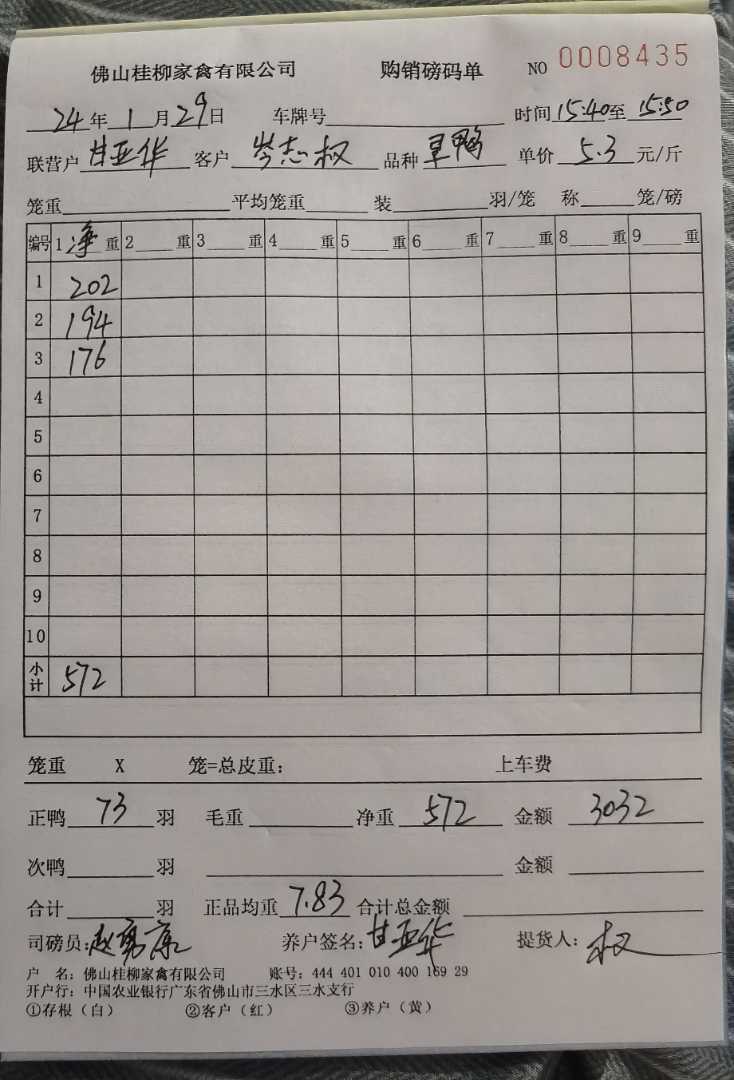 佛山桂柳家禽有限公司 购销磅码单 NO 0008435
24年1月29日 车牌号 时间15:40至15:50
联营户 甘亚华 客户 岑志权 品种 旱鸭 单价 5.3 元/斤
笼重 平均笼重 装 羽/笼 称 笼/磅
编号 1净重 2 重 3 重 4 重 5 重 6 重 7 重 8 重 9 重
1 202
2 194
3 176
4
5
6
7
8
9
10
小计 572
笼重 X 笼=总皮重: 上车费
正鸭 73 羽 毛重 净重 572 金额 3032
次鸭 羽 金额
合计 羽 正品均重 7.83 合计总金额
司磅员:赵勇康 养户签名:甘亚华 提货人:权
户 名: 佛山桂柳家禽有限公司 账号: 444 401 010 400 169 29
开户行: 中国农业银行广东省佛山市三水区三水支行
①存根(白) ②客户(红) ③养户(黄)